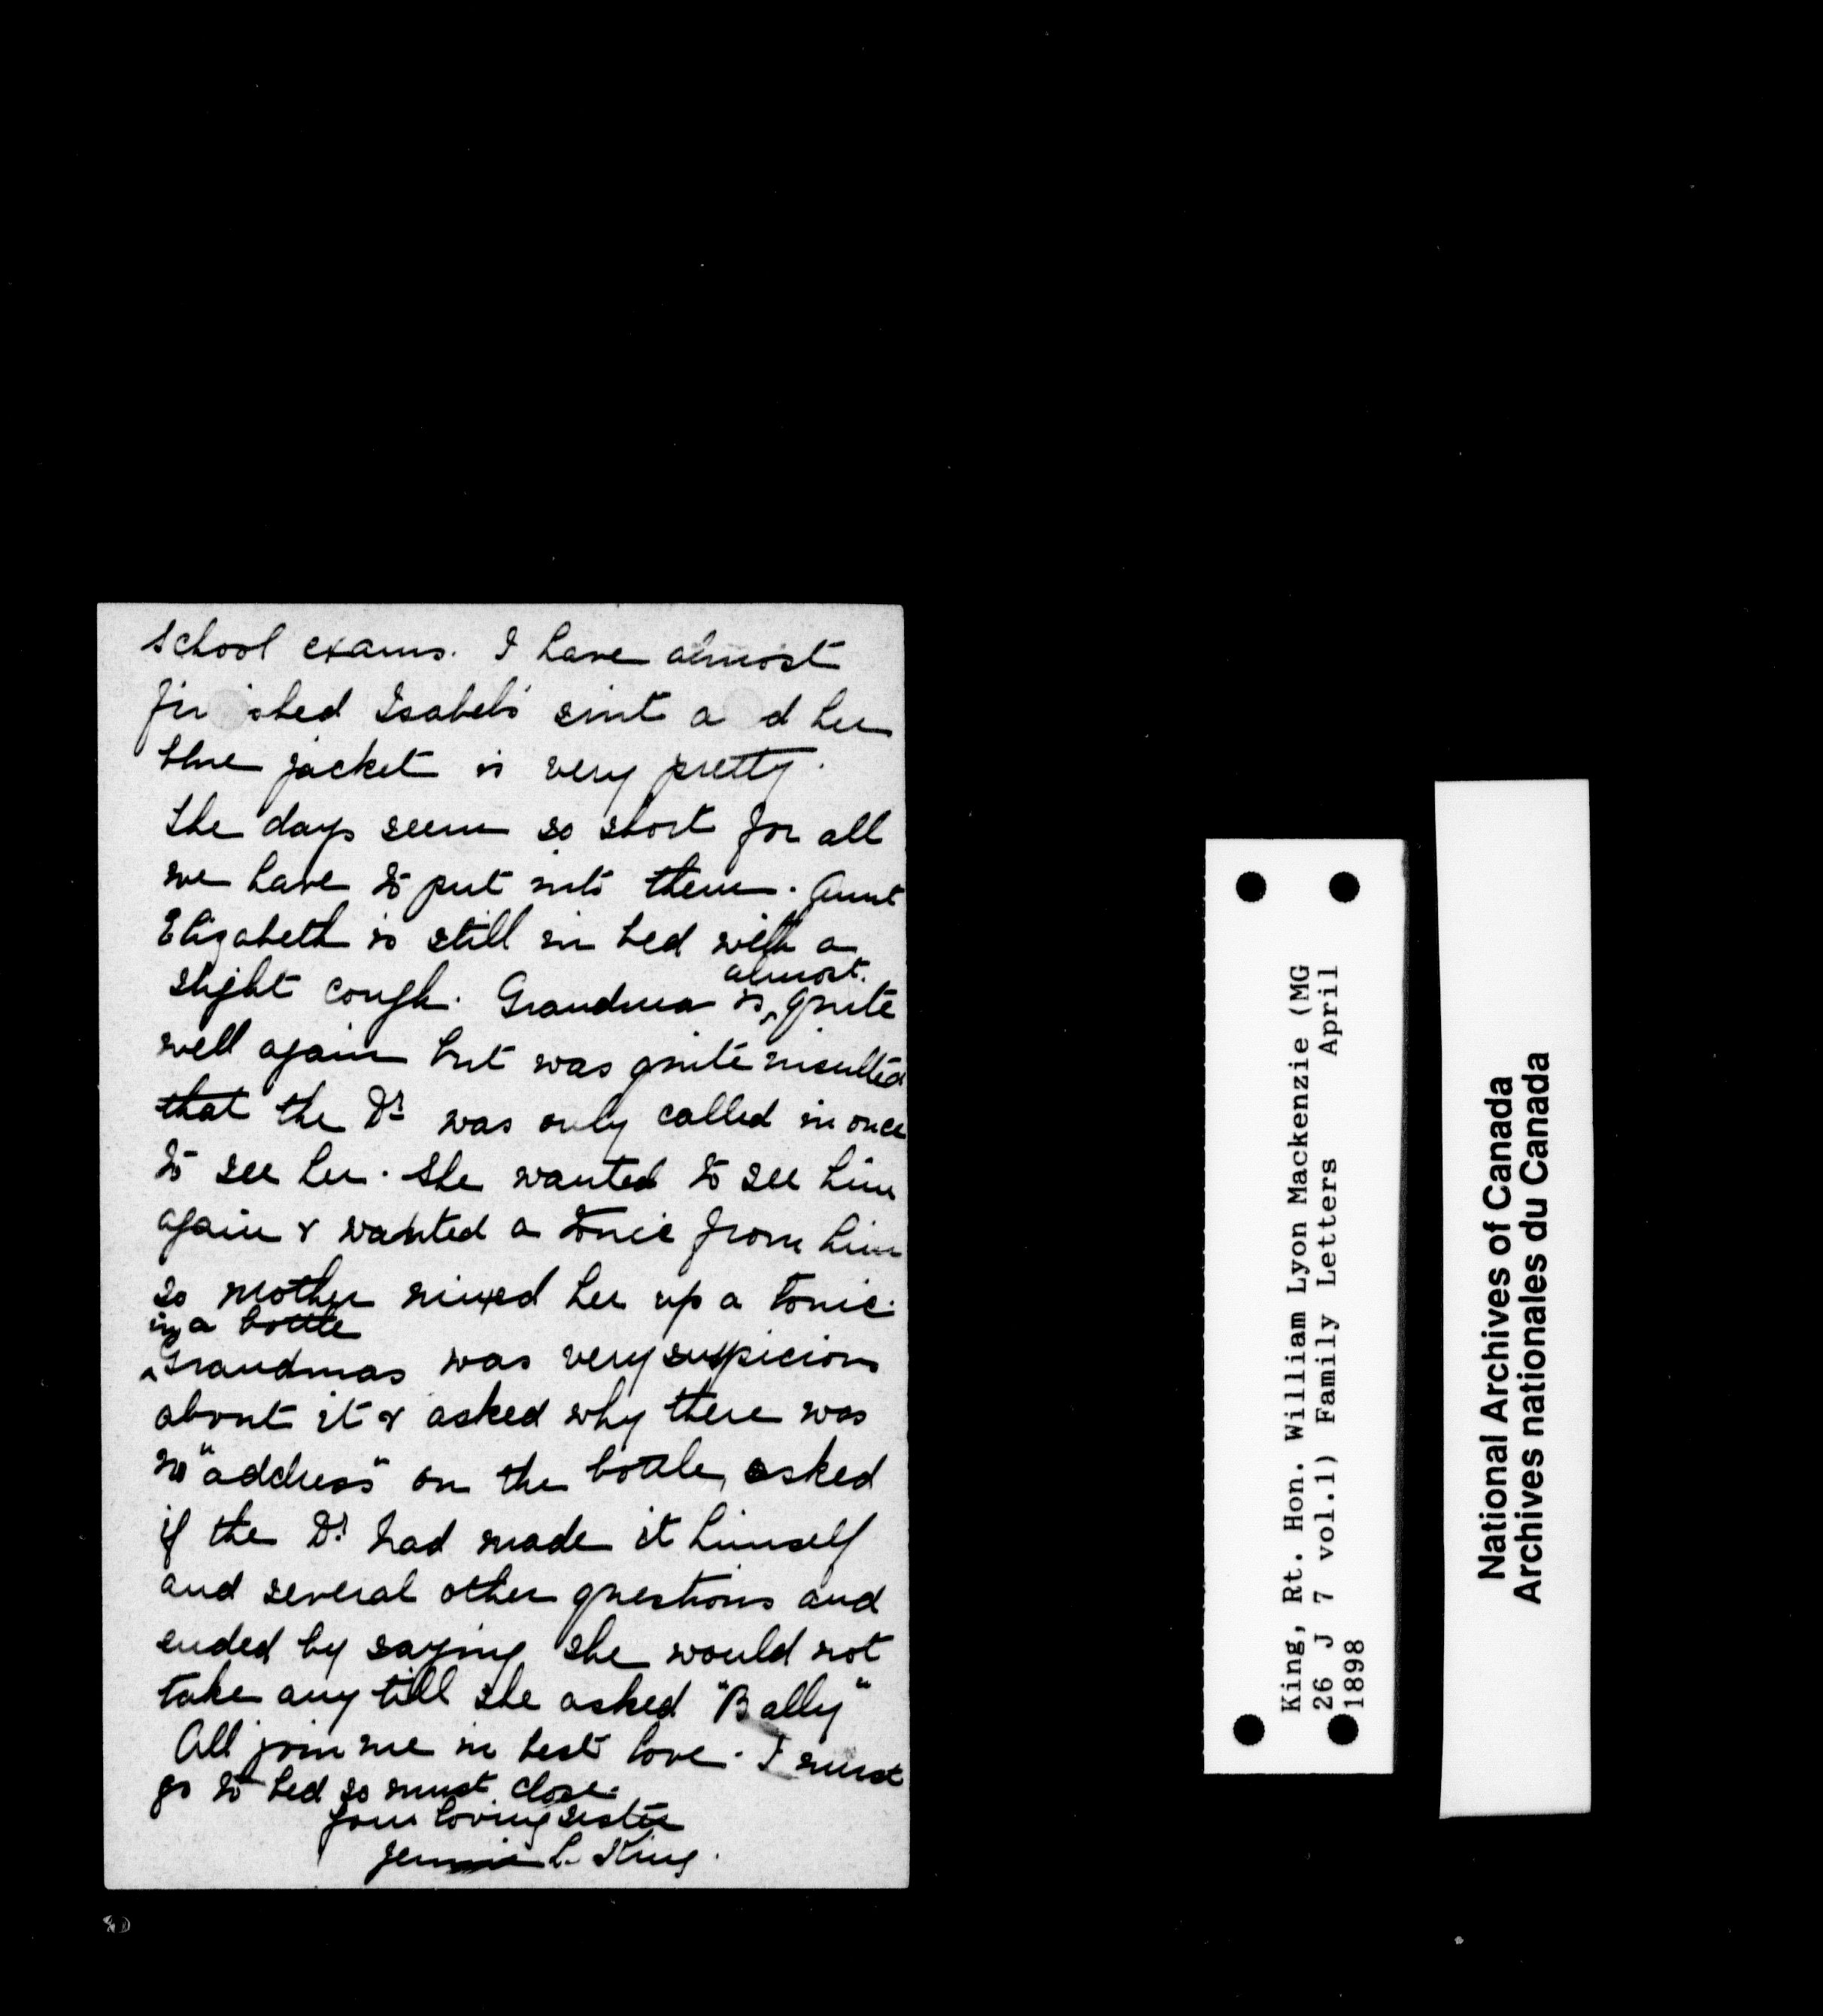 school exams. I have almost
fin shed Isabel's suit a d her
blue jacket is very pretty.
The days seem so short for all
we have to put into them. Aunt
Elizabeth is still in bed with a
almost.
slight cough. Grandma is ^ quite
well again but was quite insulted
that the Dr. was only called in once
to see her. She wanted to see him
again & wanted a tonic from him
so Mother mixed her up a tonic.
in a bottle
^ Grandmas was very suspicious
about it & asked why there was
no "address" on the bottle, asked
if the Dr. had made it himself
and several other questions and
ended by saying she would not
take any till she asked "Bally"
All join me in best love. I must
go to bed so must close.
Your loving sister
Jennie L. King.
King, Rt. Hon. William Lyon Mackenzie (MG
26 J 7 vol.1) Family Letters April
1898
National Archives of Canada
Archives nationales du Canada